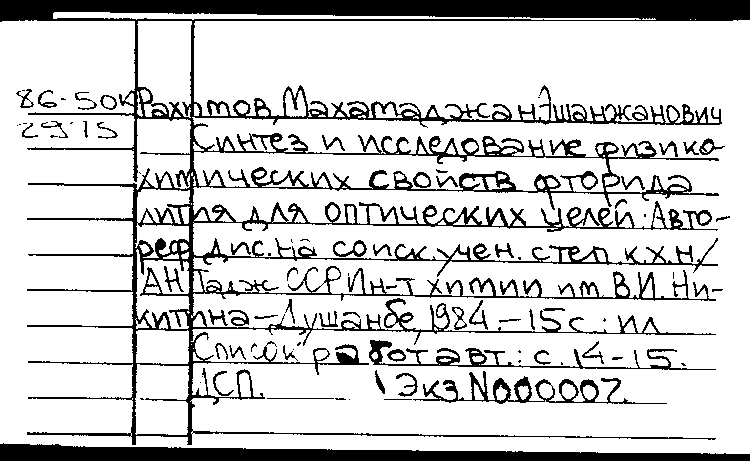 86-50К Рахимов, Махамаджан Эшанжанович
2915 Синтез и исследование физико-
химических свойств фторида
лития для оптических целей: Авто-
реф. дис. на соиск. учен. степ. к.х.н./
АН Тадж ССР, Ин-т химии им. В.И. Ни-
китина.-Душанбе, 1984.-15с.: ил
Список работ авт.: с. 14-15.
ДСП. Экз. N000007.